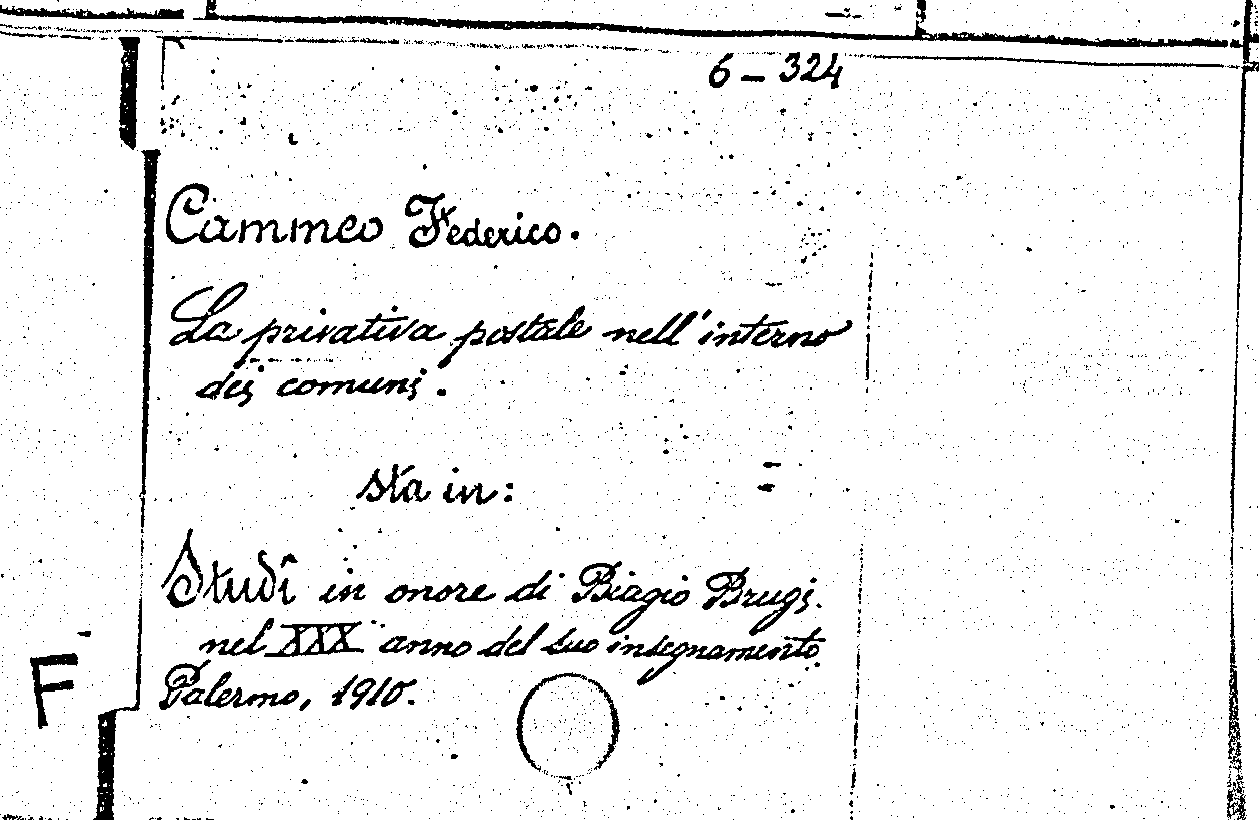 6 - 324
Cammeo Federico.
La privativa postale nell'interno
dei comuni.
sta in:
Studî in onore di Biagio Brugi.
nel XXX anno del suo insegnamento.
Palermo, 1910.
F